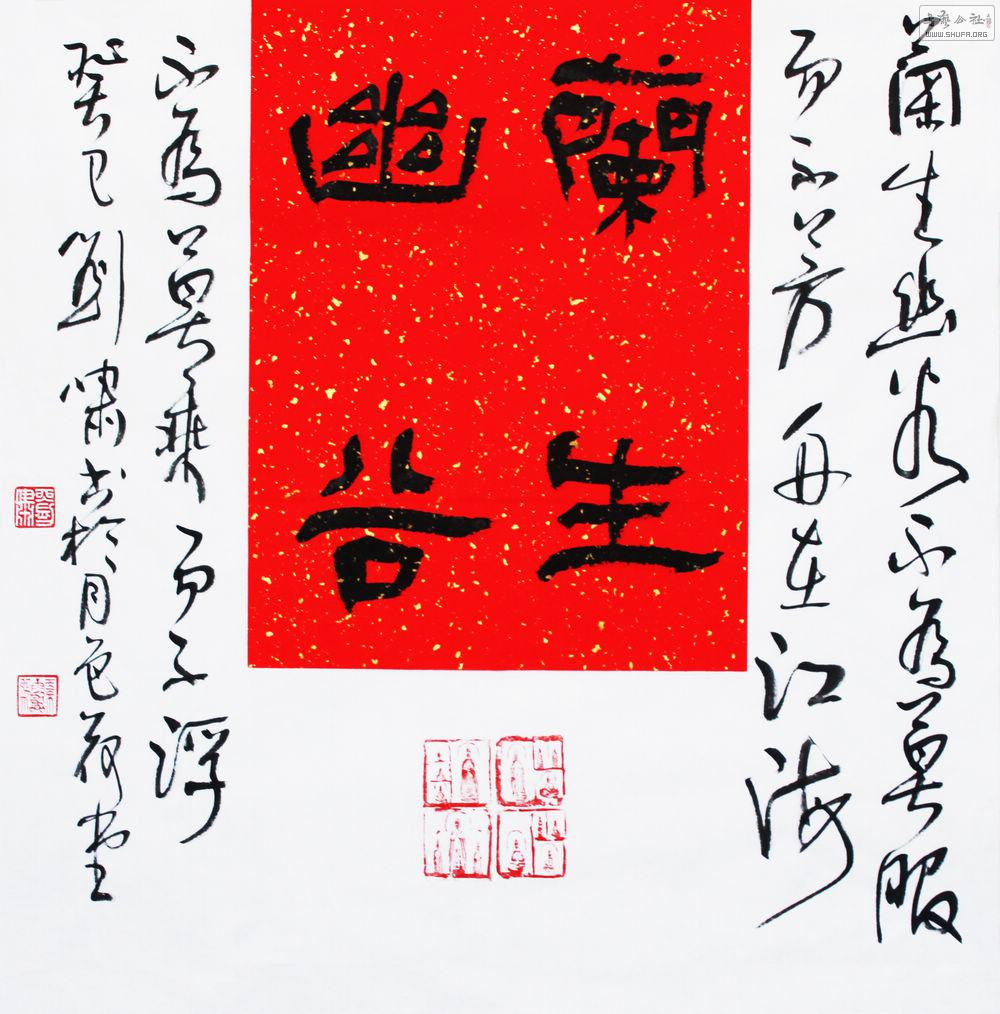 蘭生
幽谷
蘭生幽谷不為莫服
而不芳舟在江海
不為莫乘而不浮
癸巳劉嘯書於月色荷堂
WWW.SHUFA.ORG